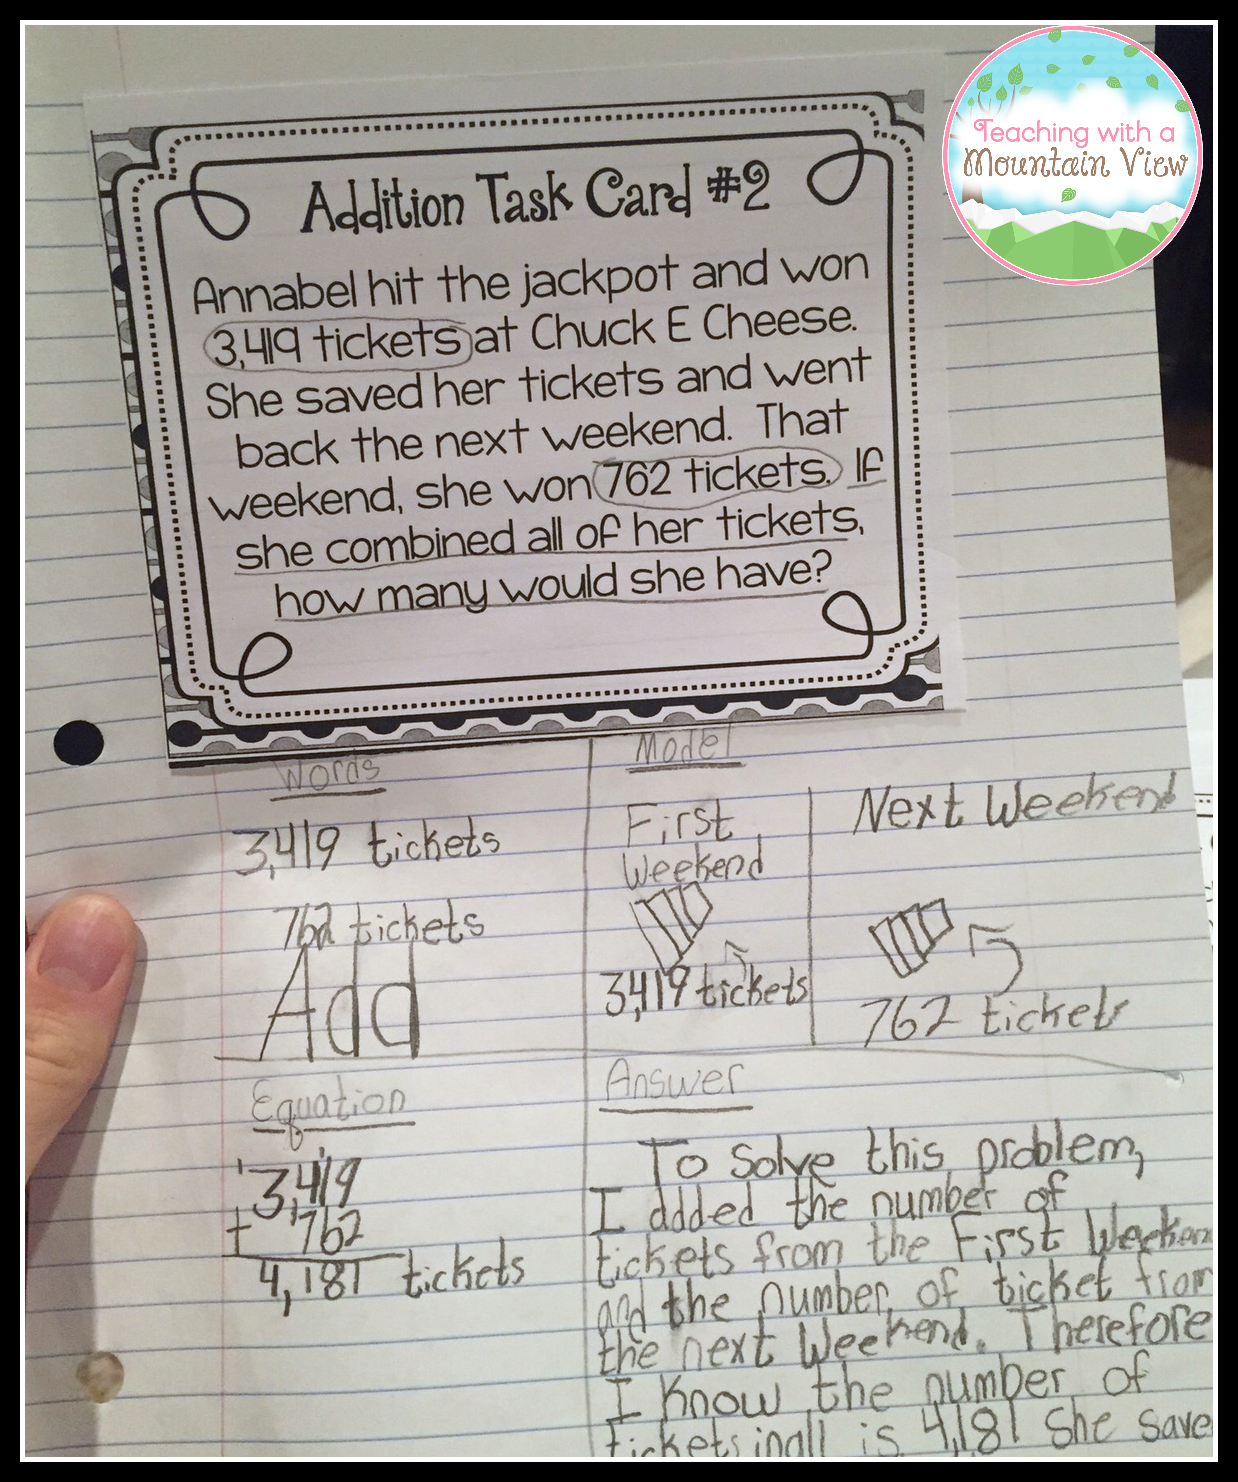 Teaching with a
Mountain View
Addition Task Card #2
Annabel hit the jackpot and won
3,419 tickets at Chuck E Cheese.
She saved her tickets and went
back the next weekend. That
weekend, she won 762 tickets. If
she combined all of her tickets,
how many would she have?
Words
3,419 tickets
762 tickets
Add
Model
First
Weekend
3,419 tickets
Next Weekend
762 tickets
Equation
1 1
3,419
+ 762
4,181 tickets
Answer
To Solve this problem,
I added the number of
tickets from the First Weeken
and the number of ticket from
the next Weekend. Therefore
I Know the number of
tickets inall is 4,181 She save